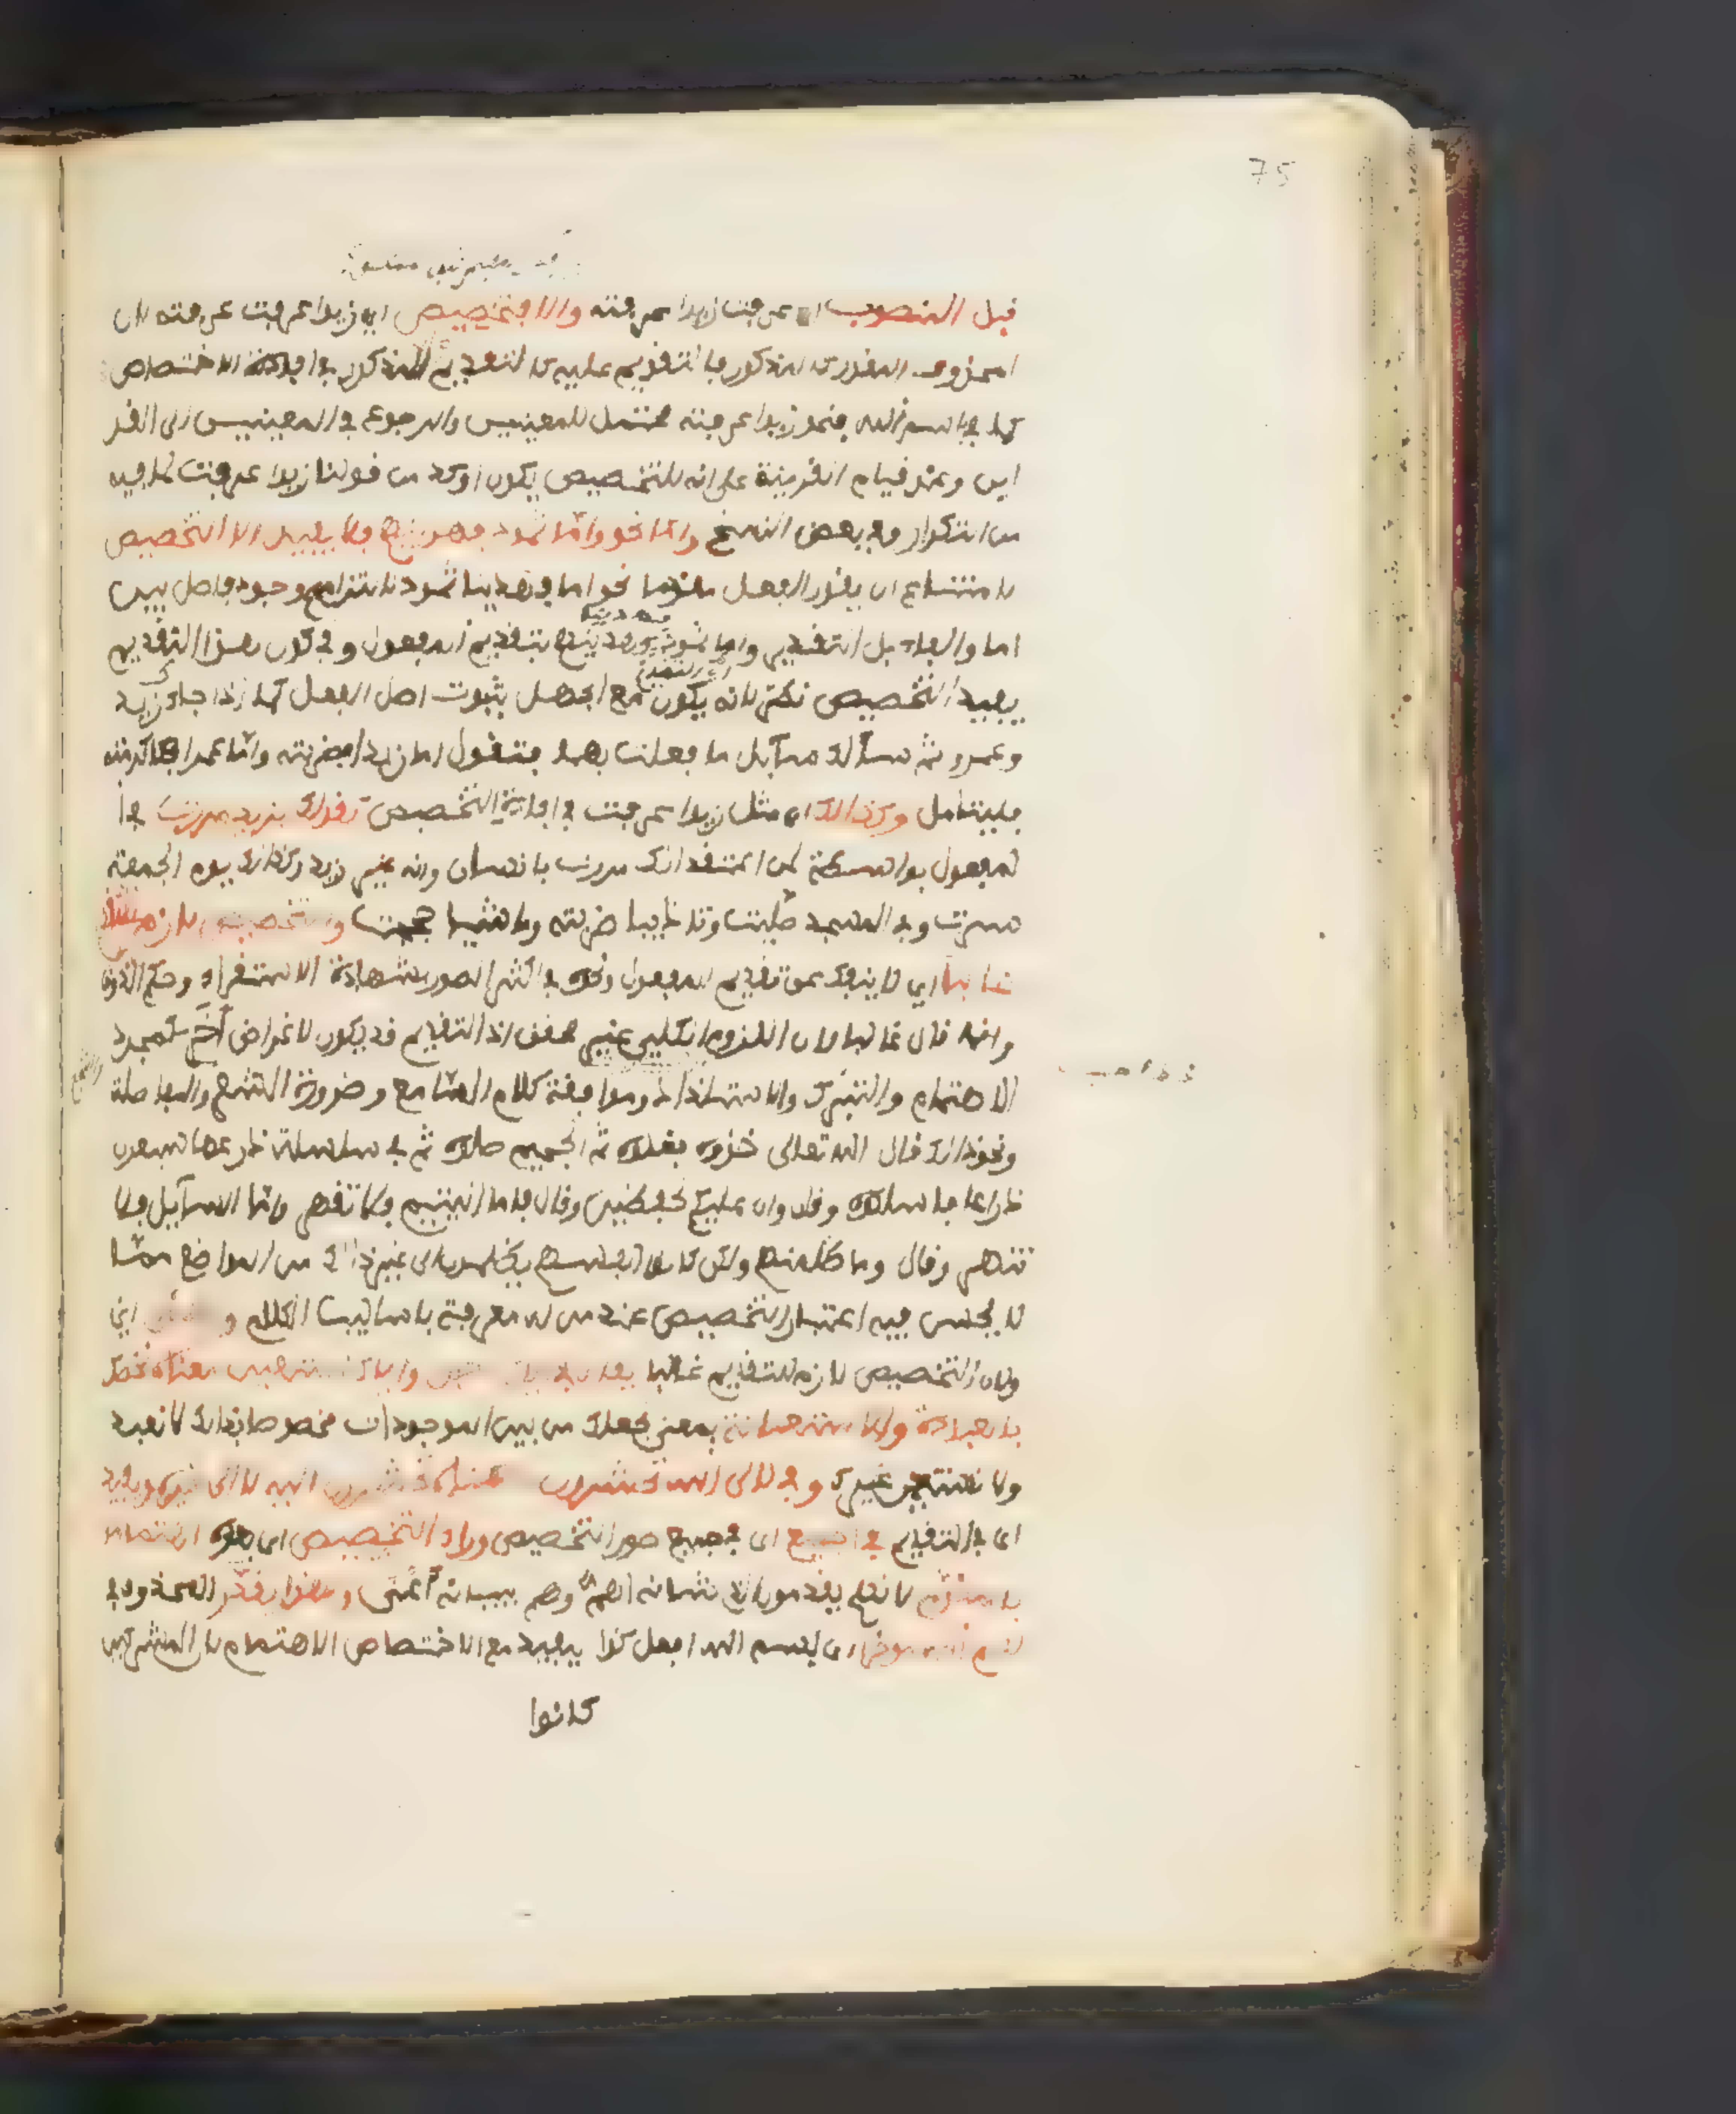 75
قبل المنصوب اي عرفت زيدا عرفته والا فتخصيص اي زيدا عرفت عرفته لان
المحذوف المقدر كالمذكور فالتقديم عليه كالتقديم على المذكور في افادة الاختصاص
كما في بسم الله فنحو زيدا عرفته محتمل للمعنيين والرجوع في المعنيين الى القر
اين وعند قيام القرينة على انه للتخصيص يكون اوكد من قولنا زيدا عرفت لما فيه
من التكرار وفي بعض النسخ واما نحو واما ثمود فهديناهم فلا يفيد الا التخصيص
لامتناع ان يقدر الفعل مقدما نحو اما فهدينا ثمود لالتزامهم وجود فاصل بين
اما والفاء بل التقدير واما ثمود فهديناهم بتقديم المفعول وفي كون هذا التقديم
يفيد التخصيص نظر لانه يكون مع الجهل بثبوت اصل الفعل كما اذا جاءك زيد
وعمرو ثم سألك سآيل ما فعلت بهما فتقول اما زيدا فضربته واما عمرا فاكرمته
فليتامل وكذالك اي مثل زيدا عرفت في افادة التخصيص قولك بزيد مررت في ا
لمفعول بواسطة لمن اعتقد انك مررت بانسان وانه غير زيد وكذالك يوم الجمعة
سرت وفي المسجد صليت وتاديبا ضربته وماشيا حججت والتخصيص لازم للتقديم
غالبا اي لا ينفك عن تقديم المفعول ونحوه في اكثر الصور بشهادة الاستقراء وحكم الذوق
وانما قال غالبا لان اللزوم الكلي غير محقق اذ التقديم قد يكون لاغراض أخر كمجرد
الاهتمام والتبرك والاستلذاذ وموافقة كلام السامع وضرورة الشعر والفاصلة
ونحو ذالك قال الله تعالى خذوه فغلوه ثم الجحيم صلوه ثم في سلسلة ذرعها سبعون
ذراعا فاسلكوه وقال وان عليكم لحفظين وقال فاما اليتيم فلا تقهر واما السآيل فلا
تنهر وقال وما ظلمنهم ولكن كانوا انفسهم يظلمون الى غير ذالك من المواضع مما
لا يحسن فيه اعتبار التخصيص عند من له معرفة باساليب الكلام و اي
ولان التخصيص لازم للتقديم غالبا يقال في اياك نعبد واياك نستعين معناه نخصك
بالعبادة والاستعانة بمعنى نجعلك من بين الموجودات مخصوصا بذالك لا نعبد
ولا نستعين غيرك وفي لالى الله تحشرون معناه تحشرون اليه لا الى غيره ويفيد
اي التقديم في الجميع اي جميع صور التخصيص وراء التخصيص اي بعده اهتماما
بالمقدم لانهم يقدمون الذي شأنه اهم وهم ببيانه أعنى ولهذا يقدر المحذوف في
بسم الله موخرا اي بسم الله افعل كذا ليفيد مع الاختصاص الاهتمام لان المشركين
كانوا